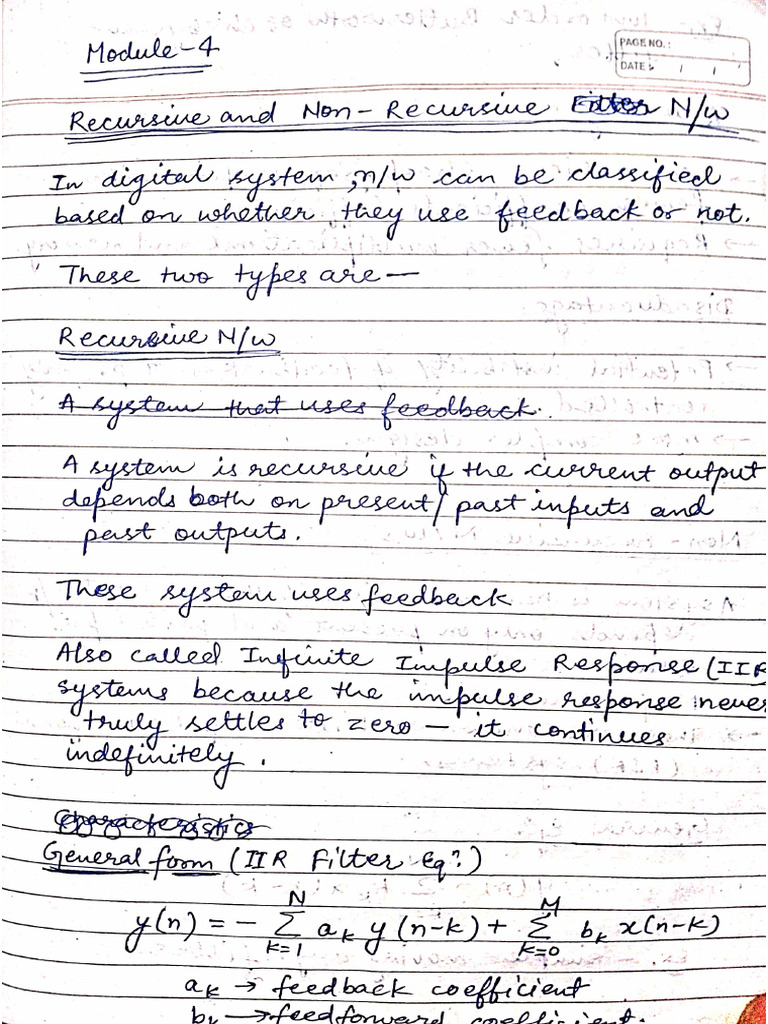 Module-4
PAGE NO.:
DATE: / /
Recursive and Non-Recursive Filter N/w
In digital system, n/w can be classified
based on whether they use feedback or not.
These two types are —
Recursive N/w
A system that uses feedback.
A system is recursive if the current output
depends both on present/past inputs and
past outputs.
These system uses feedback
Also called Infinite Impulse Response (IIR
systems because the impulse response never
truly settles to zero — it continues
indefinitely.
Characteristics
General form (IIR Filter Eqⁿ)
y(n) = - Σ_{k=1}^{N} a_k y(n-k) + Σ_{k=0}^{M} b_k x(n-k)
a_k → feedback coefficient
b_k → feedforward coefficient.